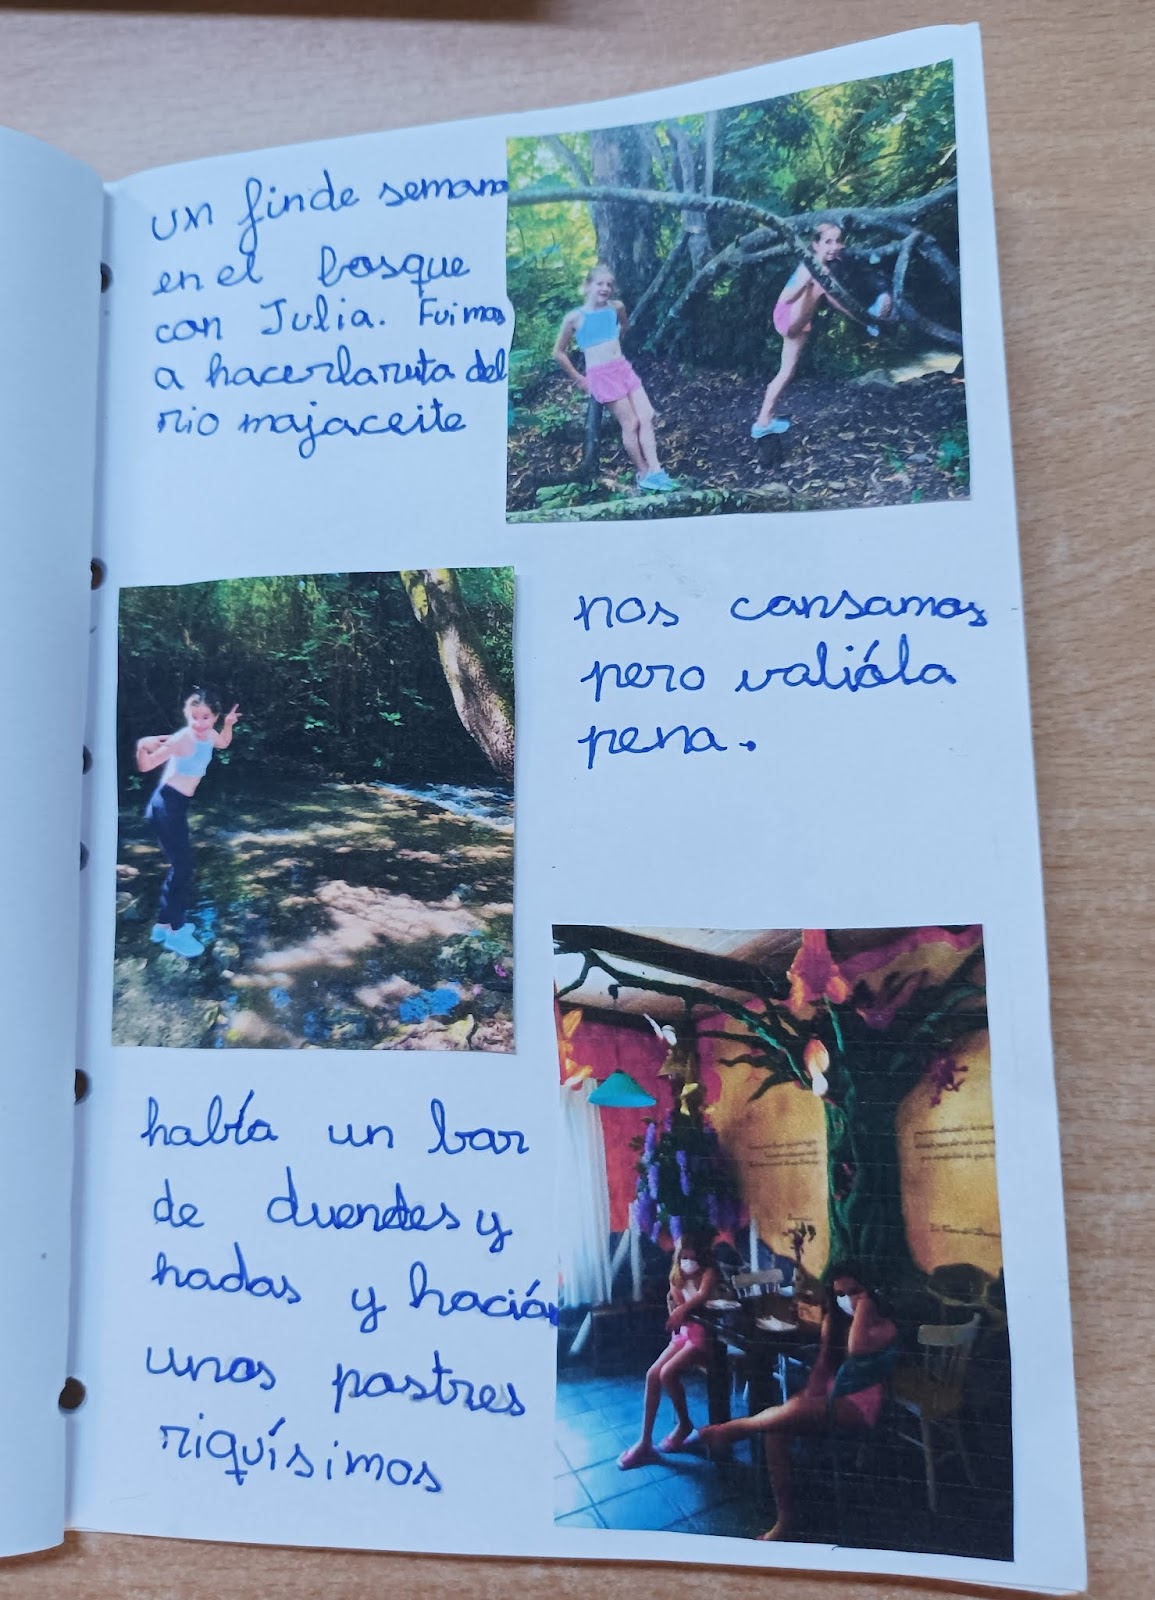 un finde semana
en el bosque
con Julia. Fuimos
a hacerlaruta del
rio majaceite
nos cansamos
pero valióla
pena.
había un bar
de duendes y
hadas y hación
unos postres
riquísimos